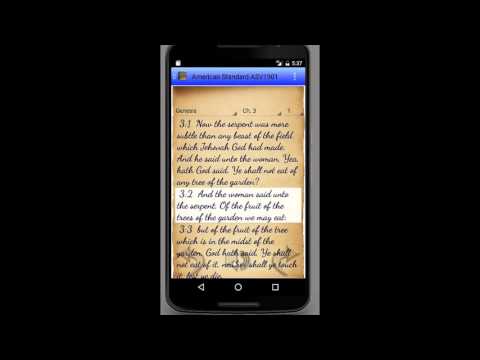 5:37
American Standard ASV1901
Genesis Ch. 3 1
3:1 Now the serpent was more
subtle than any beast of the field
which Jehovah God had made.
And he said unto the woman, Yea,
hath God said, Ye shall not eat of
any tree of the garden?
3:2 And the woman said unto
the serpent, Of the fruit of the
trees of the garden we may eat:
3:3 but of the fruit of the tree
which is in the midst of the
garden, God hath said, Ye shall
not eat of it, neither shall ye touch
it, lest ye die.